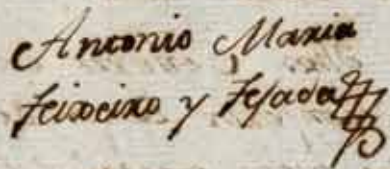 Antonio Maria
Teixeiro y Tejada